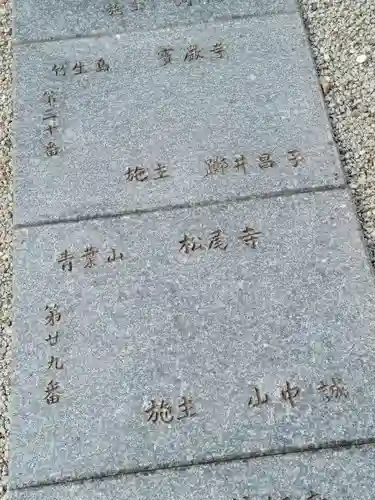 竹生島 寶厳寺
第三十番
施主 井昌子
青葉山 松尾寺
第廿九番
施主 山中誠